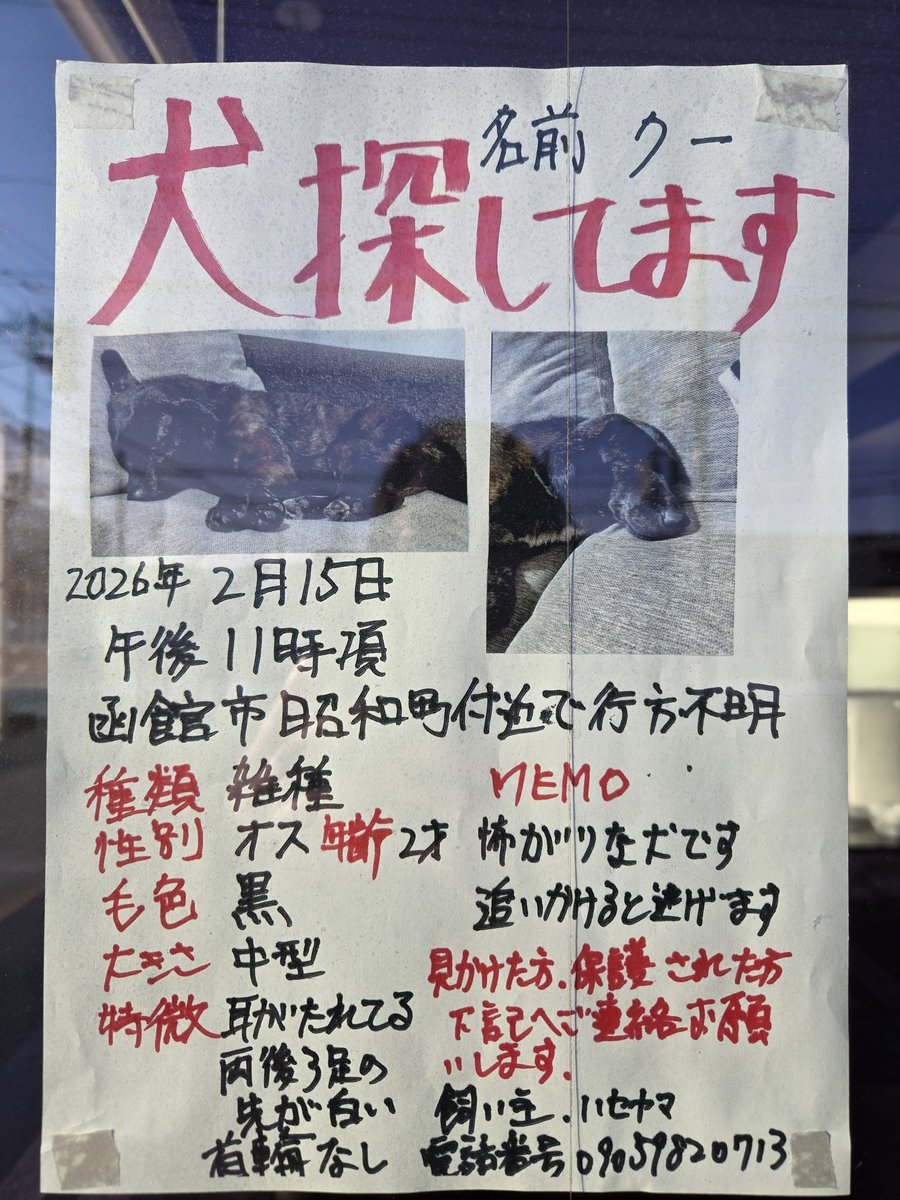 名前 クー
犬探してます
2026年 2月15日
午後 11時頃
函館市昭和町付近で行方不明
種類 雑種
性別 オス 年齢 2才
毛色 黒
大きさ 中型
特徴 耳がたれてる
両後ろ足の
先が白い
首輪なし
MEMO
怖がりな犬です
追いかけると逃げます
見かけた方、保護された方
下記へご連絡お願
いします.
飼い主.ハセヤマ
電話番号 09059820713